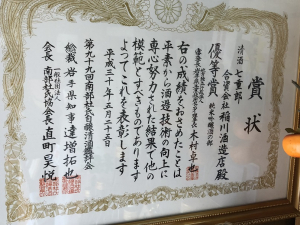 賞状
清酒 七重郎
合資会社 稲川酒造店殿
純米吟醸酒の部
優等賞
木村卓也
右の成績をおさめたことは
平素から酒造技術の向上に
専心努力された結果で他の
模範とすべきものであります
よってこれを表彰します
平成三十年五月二十三日
第九十九回南部杜氏自醸清酒鑑評会
総裁 岩手県知事 達増拓也
一般社団法人
会長 南部杜氏協会会長